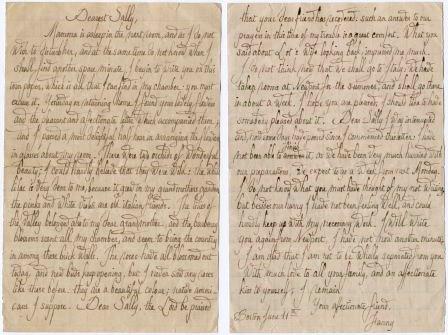 Dearest Sally,
Mamma is asleep in the next room, and as I do not
wish to disturb her, and at the same time do not know when I
shall find another spare minute, I begin to write you on this
torn paper, which is all that I can find in my chamber: you must
excuse it. Yesterday on returning home, I found your lovely flowers
and the pleasant and affectionate letter which accompanied them;
and I passed a most delightful half hour in arranging the flowers
in glasses about my room. There were two orchids of wonderful
beauty; I could hardly believe that they were wild: the white
lilac is very dear to me, because it grew in my grandmother's garden
the pinks and white violets are old Italian friends. The lilies of
the valley belonged also to my dear grandmother, and the
blossoms scent all my chamber, and seem to bring the country
in among these brick walls. The roses have all blossomed out
today, and new buds keep opening; but I never saw any roses
like these before: they are a beautiful colour; native Ameri-
cans I suppose. Dear Sally, the Lord be praised
that your dear friend has received such an answer to our
prayers in this time of my trouble is a great comfort. What you
said about Lot's wife looking back, impressed me much.
Do not think now that we shall go to Italy: we have
taken rooms at Newport for the Summer, and shall go there
in about a week. I hope you are pleased; I should like to have
somebody pleased about it. Dear Sally, I was interrupted
and now some days have passed since I commenced this letter: I have
not been able to finish it as we have been very much hurried with
our preparations. We expect to go a week from next Monday.
I do not know what you must have thought of my not writing
but besides our hurry I have not been feeling well, and could
hardly keep up with my necessary work. I will write
you again from Newport. I have not now another minute.
I am glad that I am not to be wholly separated from you
With much love to all your family, and an affectionate
kiss to yourself, I remain
Your affectionate friend,
Boston June 11th Fanny